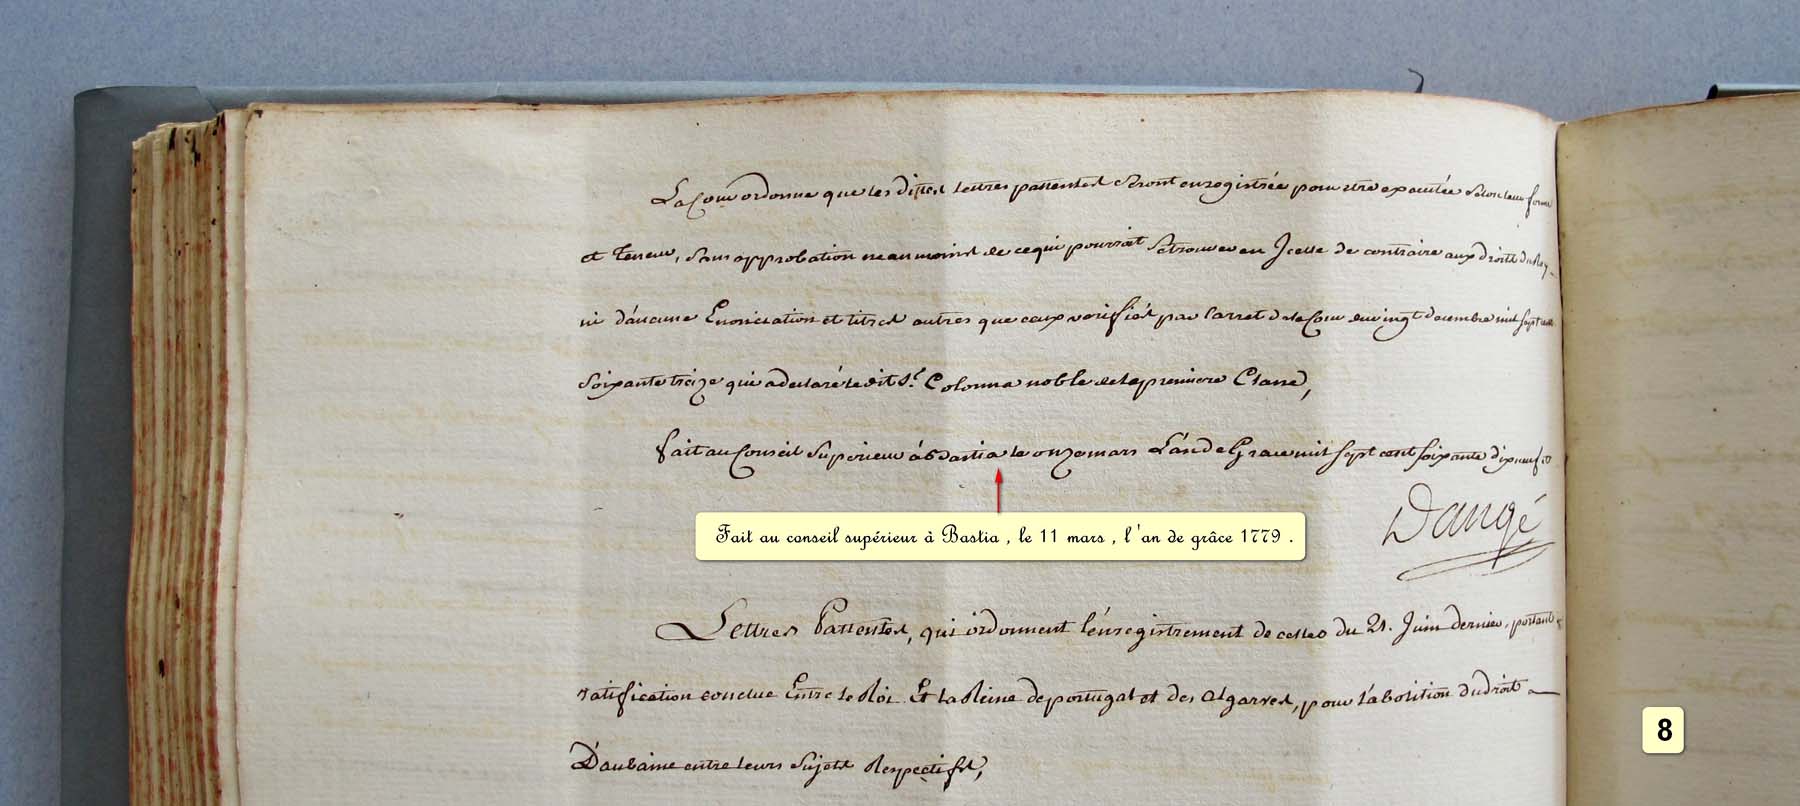 La Cour ordonne que les dittes Lettres pattentes Seront enregistrée pour etre executée Selon leur forme
et teneur, Sans approbation neanmoins de ce qui pourroit Se trouver en Icelle de contraire aux droits du Roy
ni d'aucune Enonciation et titres autres que ceux verifiés par l'arret de la Cour du vingt decembre mil Sept cent
Soixante treize qui a declaré ledit S.r Colonna noble de la premiere Classe,
fait au Conseil Superieur à Bastia le onze mars L'an de Grace mil Sept cent Soixante dix neuf
Dangé
Fait au conseil supérieur à Bastia , le 11 mars , l'an de grâce 1779 .
Lettres Pattentes, qui ordonnent l'enregistrement de celles du 21. Juin dernier, portant
ratification conclue Entre le Roi Et La Reine de portugal et des algarves, pour l'abolition du droit
D'aubaine entre leurs Sujets Respectifs,
8